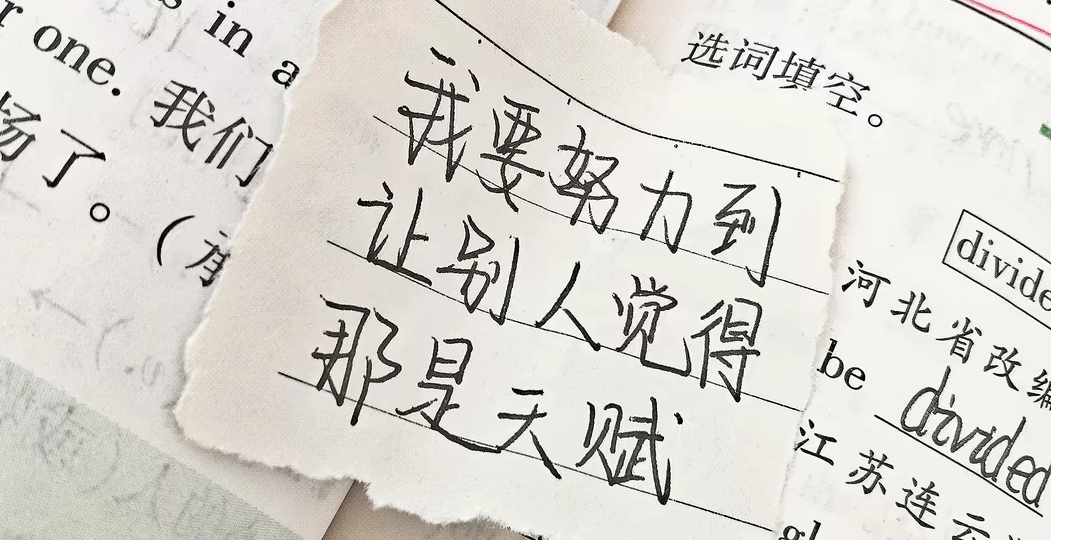 s in
r one.
in a
我们
场了。（
选词填空。
我要努力到
让别人觉得
那是天赋
divide
河北省改编
be divided
江苏连云